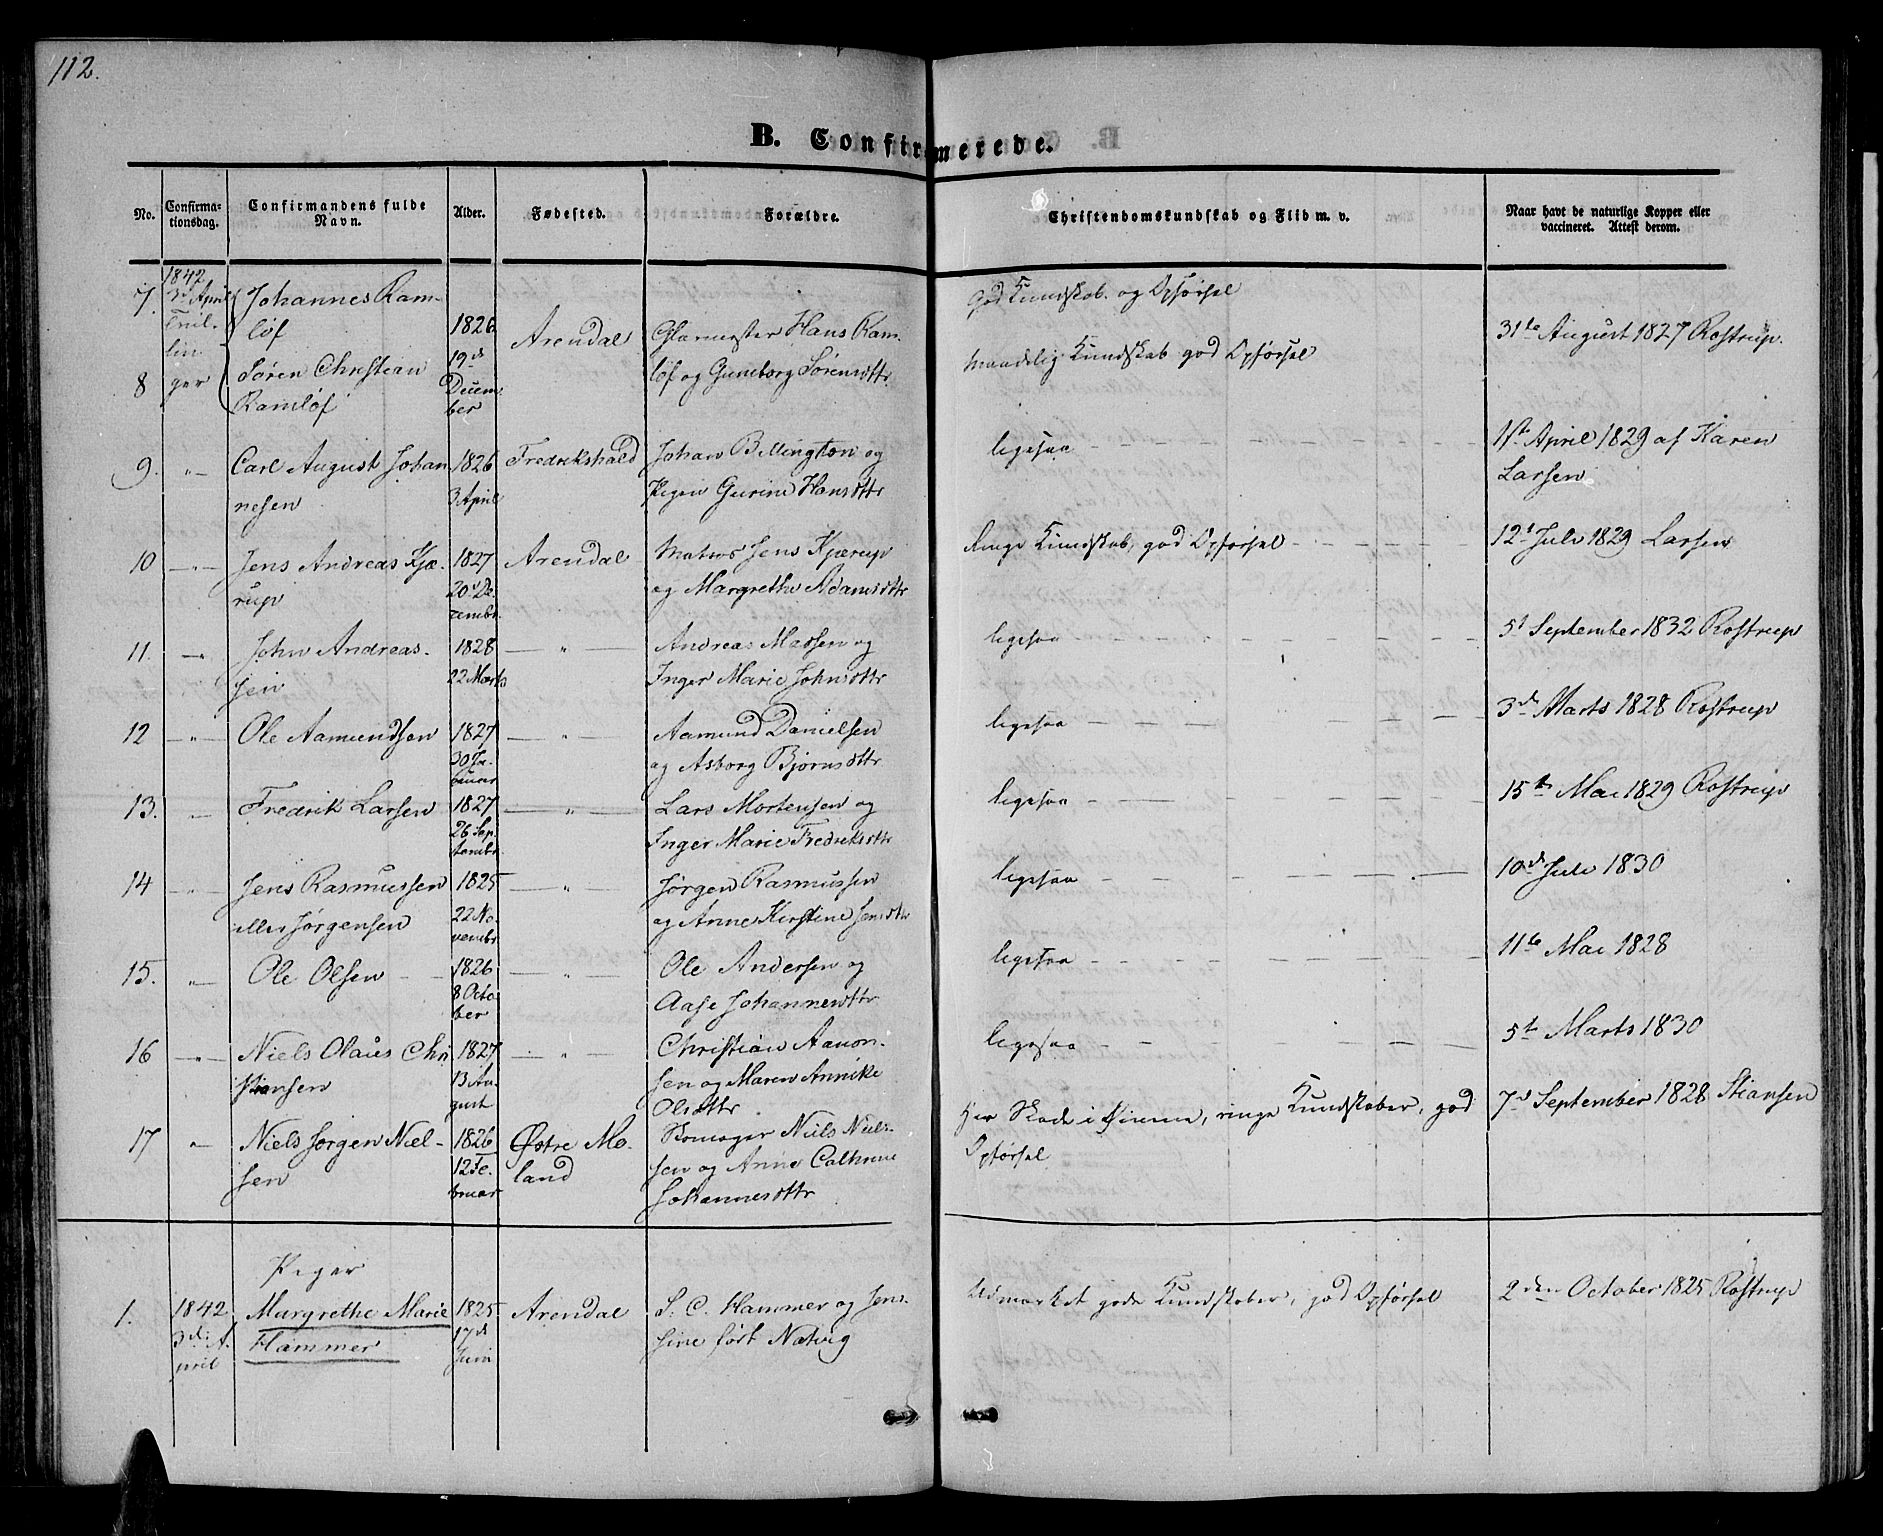 112.
B. Confirmerede.
No.
Confirma-
tionsdag.
Confirmandens fulde
Navn.
Alder.
Fødested.
Forældre.
Christendomskundskab og Flid m. v.
Naar havt de naturlige Kopper eller
vaccineret. Attest derom.
7.
1842
3d April
Tvil-
lin-
ger
Johannes Ram-
løf
1826
19d
Decem-
ber
Arendal
Glarmester Hans Ram-
løf og Guneborg Sørensdttr
God Kundskab og Opførsel
31te August 1827 Rostrup.
8
Søren Christian
Ramløf
Maadelig Kundskab god Opførsel
9. -"-
Carl August Johan
nesen
1826
3 April
Fredrikshald
Johan Billington og
Pigen Gurine Hansdttr
ligesaa
1ste April 1829 af Karen
Larsen
10 -"-
Jens Andreas Kjæ-
rup
1827
20d De-
cembr
Arendal
Matros Jens Kjærup
og Margrethe Adamsdttr
Ringe Kundskab, god Opførsel
12t Juli 1829 Larsen
11. -"-
John Andreas-
sen
1828
22 Marts
-"-
Andreas Massen og
Inger Marie Johnsdttr
ligesaa
5t September 1832 Rostrup
12 -"-
Ole Aamundsen
1827
30 Ja-
nuar
-"-
Aamund Danielsen
og Asborg Bjørnsdttr
ligesaa
3de Marts 1828 Rostrup
13. -"-
Fredrik Larsen
1827
26 Sep-
tembr
-"-
Lars Mortensen og
Inger Marie Fredriksdttr
ligesaa
15th Mai 1829 Rostrup
14 -"-
Jens Rasmussen
eller Jørgensen
1825
22 No-
vembr
-"-
Jørgen Rasmussen
og Anne Kirstine Jensdttr
ligesaa
10de Juli 1830
15. -"-
Ole Olsen
1826
8 Octo-
ber
-"-
Ole Andersen og
Aase Johannesdttr
ligesaa
11te Mai 1828
16 -"-
Niels Olaus Chri
stiansen
1827
13 Au-
gust
-"-
Christian Aanon-
sen og Maren Annike
Olsdttr
ligesaa
5te Marts 1830
17 -"-
Niels Jørgen Niel-
sen
1826
12 Fe-
bruar
Østre Mo-
land
Skomager Niels Niels-
sen og Anne Cathrine
Johannesdttr
Har Skade i, ringe Kundskaber, god
Opførsel
7d September 1828 Stiansen
Piger
1.
1842
3d: A-
pril
Margrethe Marie
Hammer
1825
17d
Juni
Arendal
S. C. Hammer og Jen-
sine født Natvig
Udmærket gode Kundskaber, god Opførsel
2den October 1825 Rostrup